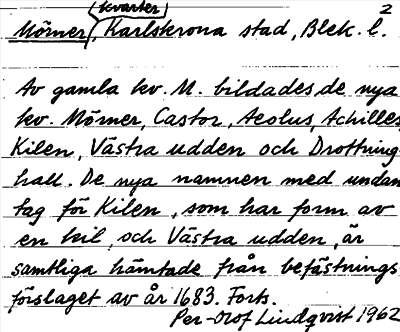 kvarter 2
Mörner, Karlskrona stad, Blek. l.
Av gamla kv. M. bildades de nya
kv. Mörner, Castor, Aeolus, Achilles,
Kilen, Västra udden och Drottning-
hall. De nya namnen med undan-
tag för Kilen, som har form av
en kil, och Västra udden, är
samtliga hämtade från befästnings-
förslaget av år 1683. Forts.
Per-Olof Lindqvist 1962